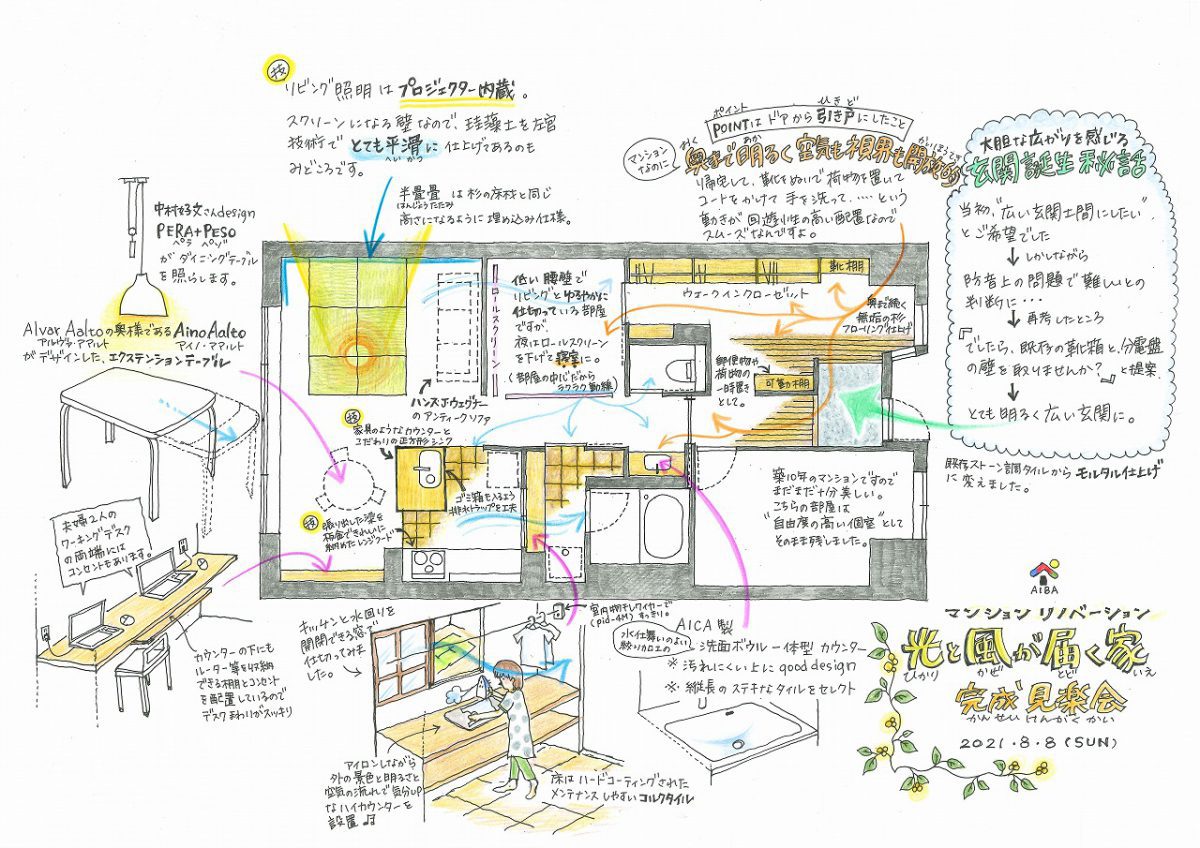 技
リビング照明はプロジェクター内蔵。
スクリーンになる壁なので、珪藻土を左官
技術でとても平滑に仕上げてあるのも
へいかつ
みどころです。
半畳畳 は杉の床材と同じ
はんじょうたたみ
高さになるように埋め込み仕様。
中村好文さんdesign
PERA+PESO
ペラ ペゾ
がダイニングテーブル
を照らします。
Alvar Aaltoの奥様であるAino Aalto
アルヴァ・アアルト
アイノ・アアルト
がデザインした、エクステンションテーブル
夫婦2人の
ワーキングデスク
の両端には
コンセントもあります。
カウンターの下にも
ルーター等を収納
できる棚とコンセント
を配置しているので
デスクまわりがスッキリ
ポイント
ひきど
POINTはドアから引き戸にしたこと
マンション
なのに
おく
あか
かいほうてき
奥まで明るく空気も視界も開放的
帰宅して、靴をぬいで荷物を置いて
コートをかけて手を洗って、……という
動きが回遊性の高い配置なので
スムーズなんですよ。
大胆な広がりを感じる
玄関誕生秘話
当初、"広い玄関土間にしたい"
とご希望でした
しかしながら
防音上の問題で難しいとの
判断に・・・
再考したところ
『でしたら、既存の靴箱と、分電盤
の壁を取りませんか?』と提案
とても明るく広い玄関に。
既存ストーン調タイルからモルタル仕上げ
に変えました。
低い腰壁で
リビングとゆるやかに
仕切っている部屋
ですが、
夜はロールスクリーン
を下げて寝室に。
(部屋の中心だから
ラクラク動線)
ロールスクリーン
靴棚
ウォークインクローゼット
奥まで続く
無垢の杉
フローリング仕上げ
郵便物や
荷物の
一時置き
として。
可動棚
ハンス・J・ウェグナー
のアンティークソファ
技
家具のようなカウンターと
こだわりの正方形シンク
ゴミ箱も入るよう
排水トラップを工夫
技
張り出した梁を
板金できれいに
納めたレンジフード
築10年のマンションですので
まだまだ十分美しい。
こちらの部屋は
"自由度の高い個室"として
そのまま残しました。
キッチンと水回りを
開閉できる窓で
仕切ってみました。
室内物干しワイヤーで
(pid-4M)すっきり。
アイロンしながら
外の景色と明るさと
空気の流れで気分up
なハイカウンターを
設置♫
床はハードコーティングされた
メンテナンスしやすいコルクタイル
AICA製
水仕舞いのよい
絞りカロエの
洗面ボウル一体型カウンター
※汚れにくい上にgood design
※縦長のステキなタイルをセレクト
AIBA
マンションリノベーション
光と風が届く家
ひかり かぜ とど いえ
完成見楽会
かんせいけんがくかい
2021.8.8(SUN)